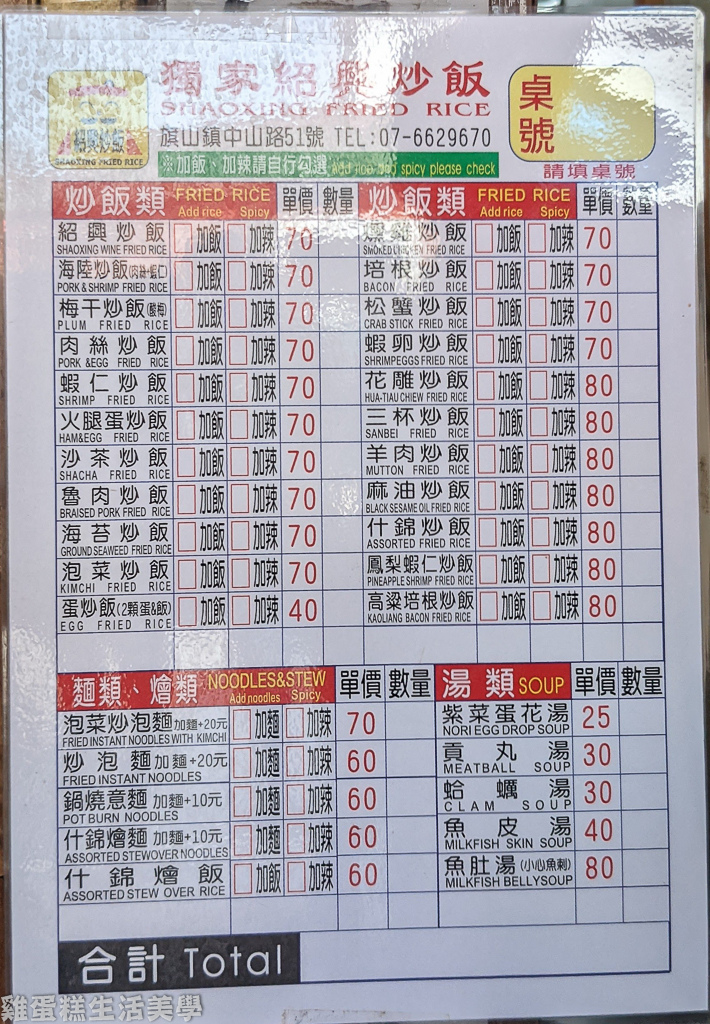 獨家紹興炒飯
SHAOXING FRIED RICE
紹興炒飯
SHAOXING FRIED RICE
旗山鎮中山路51號 TEL:07-6629670
※加飯、加辣請自行勾選 Add rice and spicy please check
桌號
請填桌號
炒飯類 FRIED RICE Add rice Spicy 單價 數量
紹興炒飯 加飯 加辣 70
SHAOXING WINE FRIED RICE
海陸炒飯(肉絲+蝦仁) 加飯 加辣 70
PORK & SHRIMP FRIED RICE
梅干炒飯(酸梅) 加飯 加辣 70
PLUM FRIED RICE
肉絲炒飯 加飯 加辣 70
PORK &EGG FRIED RICE
蝦仁炒飯 加飯 加辣 70
SHRIMP FRIED RICE
火腿蛋炒飯 加飯 加辣 70
HAM&EGG FRIED RICE
沙茶炒飯 加飯 加辣 70
SHACHA FRIED RICE
魯肉炒飯 加飯 加辣 70
BRAISED PORK FRIED RICE
海苔炒飯 加飯 加辣 70
GROUND SEAWEED FRIED RICE
泡菜炒飯 加飯 加辣 70
KIMCHI FRIED RICE
蛋炒飯(2顆蛋&飯) 加飯 加辣 40
EGG FRIED RICE
炒飯類 FRIED RICE Add rice Spicy 單價 數量
燻雞炒飯 加飯 加辣 70
SMOKED CHICKEN FRIED RICE
培根炒飯 加飯 加辣 70
BACON FRIED RICE
松蟹炒飯 加飯 加辣 70
CRAB STICK FRIED RICE
蝦卵炒飯 加飯 加辣 70
SHRIMPEGGS FRIED RICE
花雕炒飯 加飯 加辣 80
HUA-TIAU CHIEW FRIED RICE
三杯炒飯 加飯 加辣 80
SANBEI FRIED RICE
羊肉炒飯 加飯 加辣 80
MUTTON FRIED RICE
麻油炒飯 加飯 加辣 80
BLACK SESAME OIL FRIED RICE
什錦炒飯 加飯 加辣 80
ASSORTED FRIED RICE
鳳梨蝦仁炒飯 加飯 加辣 80
PINEAPPLE SHRIMP FRIED RICE
高粱培根炒飯 加飯 加辣 80
KAOLIANG BACON FRIED RICE
麵類、燴類 NOODLES&STEW Add noodles Spicy 單價 數量
泡菜炒泡麵 加麵+20元 加麵 加辣 70
FRIED INSTANT NOODLES WITH KIMCHI
炒泡麵 加麵+20元 加麵 加辣 60
FRIED INSTANT NOODLES
鍋燒意麵 加麵+10元 加麵 加辣 60
POT BURN NOODLES
什錦燴麵 加麵+10元 加麵 加辣 60
ASSORTED STEWOVER NOODLES
什錦燴飯 加飯 加辣 60
ASSORTED STEW OVER RICE
湯類 SOUP 單價 數量
紫菜蛋花湯 25
NORI EGG DROP SOUP
貢丸湯 30
MEATBALL SOUP
蛤蠣湯 30
CLAM SOUP
魚皮湯 40
MILKFISH SKIN SOUP
魚肚湯(小心魚刺) 80
MILKFISH BELLYSOUP
合計 Total
雞蛋糕生活美學